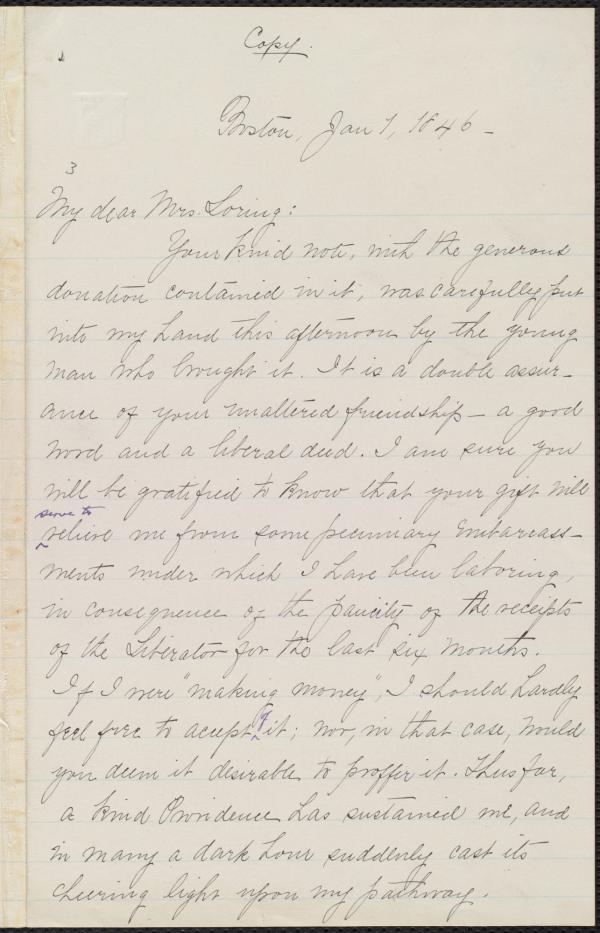 Copy.
Boston, Jan 1, 1846 -
3
My dear Mrs. Loring:
Your kind note, with the generous
donation contained in it, was carefully put
into my hand this afternoon by the young
man who brought it. It is a double assur-
ance of your unaltered friendship - a good
word and a liberal deed. I am sure you
will be gratified to know that your gift will
serve to
relieve me from some pecuniary embarrass-
ments under which I have been laboring,
in consequence of the paucity of the receipts
of the Liberator for the last six months.
If I were "making money", I should hardly
feel free to accept of it; nor, in that case, would
you deem it desirable to proffer it. Thus far,
a kind Providence has sustained me, and
in many a dark hour suddenly cast its
cheering light upon my pathway.